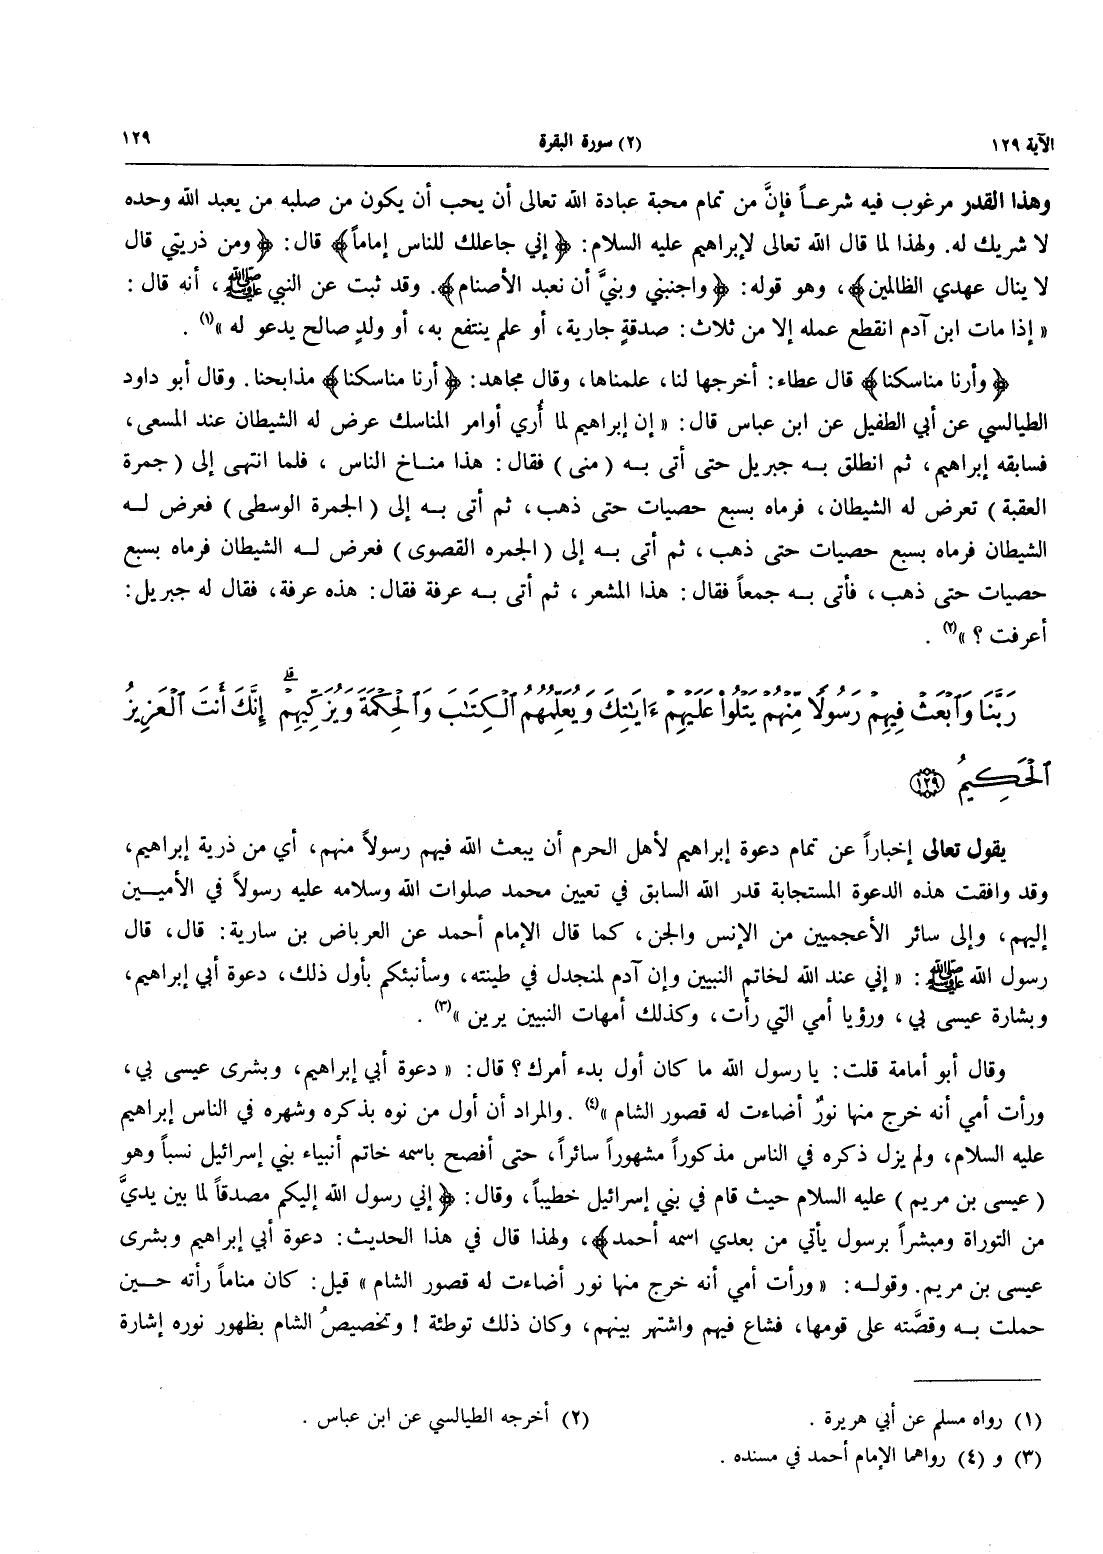 الآية ١٢٩ (٢) سورة البقرة ١٢٩
وهذا القدر مرغوب فيه شرعـاً فإنَّ من تمام محبة عبادة الله تعالى أن يحب أن يكون من صلبه من يعبد الله وحده
لا شريك له. ولهذا لما قال الله تعالى لإبراهيم عليه السلام: ﴿إني جاعلك للناس إماماً﴾ قال: ﴿ومن ذريتي قال
لا ينال عهدي الظالمين﴾، وهو قوله: ﴿واجنبني وبنيَّ أن نعبد الأصنام﴾. وقد ثبت عن النبي ﷺ، أنه قال:
« إذا مات ابن آدم انقطع عمله إلا من ثلاث: صدقةٍ جارية، أو علمٍ ينتفع به، أو ولدٍ صالح يدعو له »(١) .
﴿وأرنا مناسكنا﴾ قال عطاء: أخرجها لنا، علمناها، وقال مجاهد: ﴿أرنا مناسكنا﴾ مذابحنا. وقال أبو داود
الطيالسي عن أبي الطفيل عن ابن عباس قال: « إن إبراهيم لما أُري أوامر المناسك عرض له الشيطان عند المسعى،
فسابقه إبراهيم، ثم انطلق بـه جبريل حتى أتى بـه (منى) فقال: هذا منـاخ الناس ، فلما انتهى إلى (جمرة
العقبة) تعرض له الشيطان، فرماه بسبع حصيات حتى ذهب، ثم أتى بـه إلى (الجمرة الوسطى) فعرض لـه
الشيطان فرماه بسبع حصيات حتى ذهب، ثم أتى بـه إلى (الجمره القصوى) فعرض لـه الشيطان فرماه بسبع
حصيات حتى ذهب، فأتى بـه جمعاً فقال: هذا المشعر ، ثم أتى بـه عرفة فقال: هذه عرفة، فقال له جبريل:
أعرفت ؟ »(٢) .
رَبَّنَا وَٱبۡعَثۡ فِيهِمۡ رَسُولٗا مِّنۡهُمۡ يَتۡلُواْ عَلَيۡهِمۡ ءَايَٰتِكَ وَيُعَلِّمُهُمُ ٱلۡكِتَٰبَ وَٱلۡحِكۡمَةَ وَيُزَكِّيهِمۡۖ إِنَّكَ أَنتَ ٱلۡعَزِيزُ
ٱلۡحَكِيمُ ١٢٩
يقول تعالى إخباراً عن تمام دعوة إبراهيم لأهل الحرم أن يبعث الله فيهم رسولاً منهم، أي من ذرية إبراهيم،
وقد وافقت هذه الدعوة المستجابة قدر الله السابق في تعيين محمد صلوات الله وسلامه عليه رسولاً في الأميـين
إليهم، وإلى سائر الأعجميين من الإنس والجن، كما قال الإمام أحمد عن العرباض بن سارية: قال، قال
رسول الله ﷺ: « إني عند الله لخاتم النبيين وإن آدم لمنجدل في طينته، وسأنبئكم بأول ذلك، دعوة أبي إبراهيم،
وبشارة عيسى بي، ورؤيا أمي التي رأت، وكذلك أمهات النبيين يرين »(٣) .
وقال أبو أمامة قلت: يا رسول الله ما كان أول بدء أمرك؟ قال: « دعوة أبي إبراهيم، وبشرى عيسى بي،
ورأت أمي أنه خرج منها نورٌ أضاءت له قصور الشام »(٤) . والمراد أن أول من نوه بذكره وشهره في الناس إبراهيم
عليه السلام، ولم يزل ذكره في الناس مذكوراً مشهوراً سائراً، حتى أفصح باسمه خاتم أنبياء بني إسرائيل نسباً وهو
(عيسى بن مريم) عليه السلام حيث قام في بني إسرائيل خطيباً، وقال: ﴿إني رسول الله إليكم مصدقاً لما بين يديَّ
من التوراة ومبشراً برسول يأتي من بعدي اسمه أحمد﴾، ولهذا قال في هذا الحديث: دعوة أبي إبراهيم وبشرى
عيسى بن مريم. وقولـه: « ورأت أمي أنه خرج منها نور أضاءت له قصور الشام » قيل: كان مناماً رأته حـين
حملت بـه وقصَّته على قومها، فشاع فيهم واشتهر بينهم، وكان ذلك توطئة ! وتخصيصُ الشام بظهور نوره إشارة
(١) رواه مسلم عن أبي هريرة . (٢) أخرجه الطيالسي عن ابن عباس .
(٣) و (٤) رواهما الإمام أحمد في مسنده .